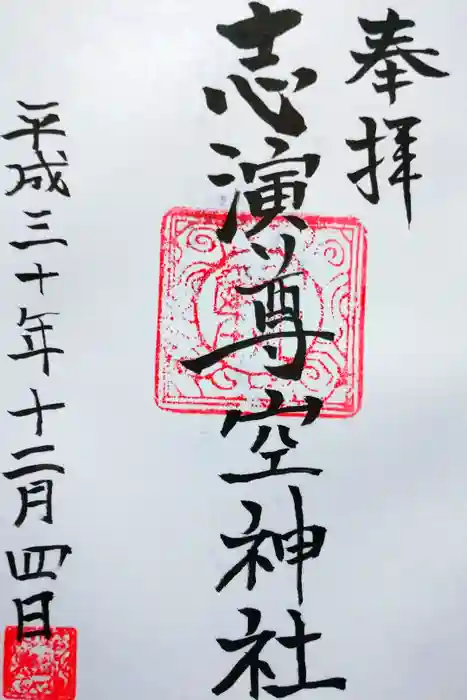 奉拝
志演尊空神社
平成三十年十二月四日